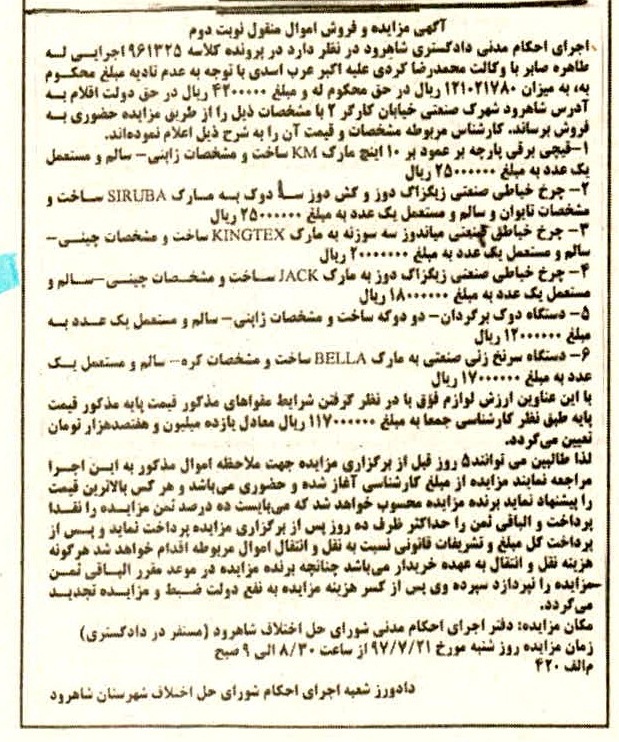 آگهی مزایده و فروش اموال منقول نوبت دوم
اجرای احکام مدنی دادگستری شاهرود در نظر دارد در پرونده کلاسه ۹۶۱۳۲۵ اجرایی له
طاهره صابر با وکالت محمدرضا کردی علیه اکبر عرب اسدی با توجه به عدم تادیه مبلغ محکوم
به، به میزان ۱۲۱۰۲۱۷۸۰ ریال در حق محکوم له و مبلغ ۴۲۰۰۰۰۰ ریال در حق دولت اقلام به
آدرس شاهرود شهرک صنعتی خیابان کارگر ۲ با مشخصات ذیل را از طریق مزایده حضوری به
فروش برساند. کارشناس مربوطه مشخصات و قیمت آن را به شرح ذیل اعلام نموده‌اند.
۱-قیچی برقی پارچه بر عمود بر ۱۰ اینچ مارک KM ساخت و مشخصات ژاپنی- سالم و مستعمل
یک عدد به مبلغ ۲۵۰۰۰۰۰۰ ریال
۲- چرخ خیاطی صنعتی زیگزاگ دوز و کش دوز سه دوک به مارک SIRUBA ساخت و
مشخصات تایوان و سالم و مستعمل یک عدد به مبلغ ۲۵۰۰۰۰۰۰ ریال
۳- چرخ خیاطی صنعتی میاندوز سه سوزنه به مارک KINGTEX ساخت و مشخصات چینی-
سالم و مستعمل یک عدد به مبلغ ۲۰۰۰۰۰۰۰ ریال
۴- چرخ خیاطی صنعتی زیگزاگ دوز به مارک JACK ساخت و مشخصات چینی-سالم و
مستعمل یک عدد به مبلغ ۱۸۰۰۰۰۰۰ ریال
۵- دستگاه دوک برگردان- دو دوکه ساخت و مشخصات ژاپنی- سالم و مستعمل یک عدد به
مبلغ ۱۲۰۰۰۰۰۰ ریال
۶- دستگاه سرنخ زنی صنعتی به مارک BELLA ساخت و مشخصات کره- سالم و مستعمل یک
عدد به مبلغ ۱۷۰۰۰۰۰۰ ریال
با این عناوین ارزش لوازم فوق با در نظر گرفتن شرایط مفواهای مذکور قیمت پایه مذکور قیمت
پایه طبق نظر کارشناسی جمعا به مبلغ ۱۱۷۰۰۰۰۰۰ ریال معادل یازده میلیون و هفتصدهزار تومان
تعیین می‌گردد.
لذا طالبین می توانند۵ روز قبل از برگزاری مزایده جهت ملاحظه اموال مذکور به این اجرا
مراجعه نمایند مزایده از مبلغ کارشناسی آغاز شده و حضوری می‌باشد و هر کس بالاترین قیمت
را پیشنهاد نماید برنده مزایده محسوب خواهد شد که می‌بایست ده درصد ثمن مزایده را نقدا
پرداخت و الباقی ثمن را حداکثر ظرف ده روز پس از برگزاری مزایده پرداخت نماید و پس از
پرداخت کل مبلغ و تشریفات قانونی نسبت به نقل و انتقال اموال مربوطه اقدام خواهد شد هرگونه
هزینه نقل و انتقال به عهده خریدار می‌باشد چنانچه برنده مزایده در موعد مقرر الباقی ثمن
مزایده را نپردازد سپرده وی پس از کسر هزینه مزایده به نفع دولت ضبط و مزایده تجدید
می‌گردد.
مکان مزایده: دفتر اجرای احکام مدنی شورای حل اختلاف شاهرود (مستقر در دادگستری)
زمان مزایده روز شنبه مورخ ۹۷/۷/۲۱ از ساعت ۸/۳۰ الی ۹ صبح
م‌الف ۴۲۰
دادورز شعبه اجرای احکام شورای حل اختلاف شهرستان شاهرود